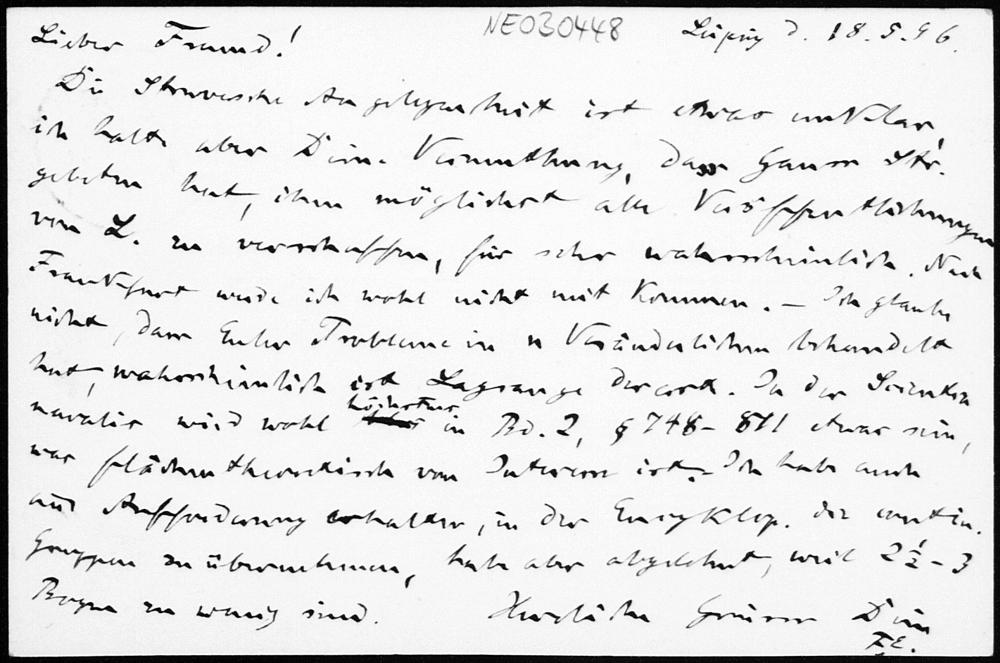 NE030448
Leipzig d. 18.5.96.
Lieber Freund!
Die Struvesche Angelegenheit ist etwas unklar,
ich halte aber Deine Vermuthung, dass Gauss Str.
gebeten hat, ihm möglichst alle Veröffentlichungen
von L. zu verschaffen, für sehr wahrscheinlich. Nach
Frankfurt werde ich wohl nicht mit kommen. – Ich glaube
nicht, dass Euler Probleme in n Veränderlichen behandelt
hat, wahrscheinlich ist Lagrange der erste. In der Scientia
navalis wird wohl höchstens in Bd. 2, § 748–811 etwas sein,
was flächentheoretisch von Interesse ist. – Ich habe auch
eine Aufforderung erhalten, in der Encyklop. die contin.
Gruppen zu übernehmen, habe aber abgelehnt, weil 2½–3
Bogen zu wenig sind. Herzliche Grüsse Dein
F.E.